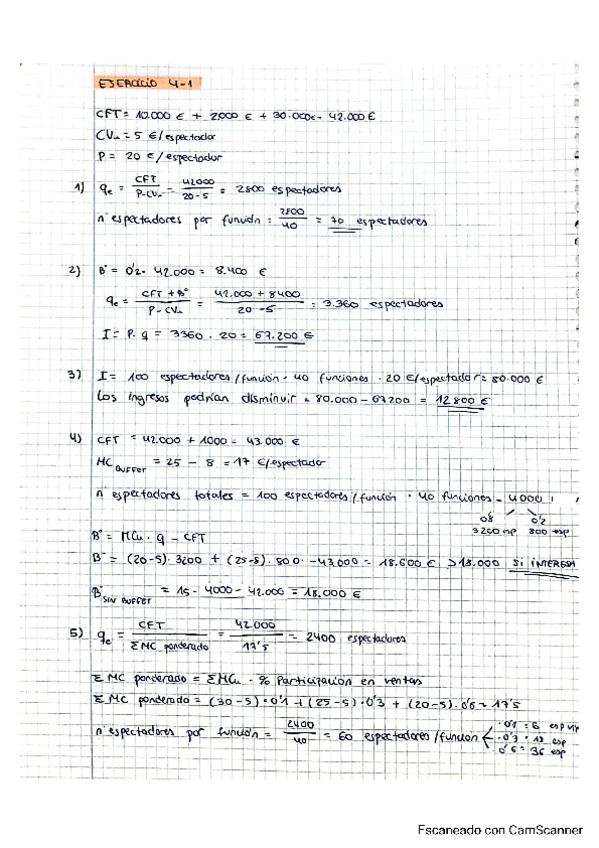 EJERCICIO 4-1
CFT = 10.000 € + 2000 € + 30.000€ = 42.000 €
CVu = 5 €/espectador
P = 20 €/espectador
1) qe = CFT / P-CVu = 42000 / 20-5 = 2800 espectadores
nº espectadores por función = 2800 / 40 = 70 espectadores
2) Bº = 0'2 · 42.000 = 8.400 €
qe = CFT + Bº / P-CVu = 42.000 + 8400 / 20-5 = 3.360 espectadores
I = P · q = 3360 · 20 = 67.200 €
3) I = 100 espectadores/función · 40 funciones · 20 €/espectador = 80.000 €
Los ingresos podrían disminuir = 80.000 - 67200 = 12.800 €
4) CFT = 42.000 + 1000 = 43.000 €
MC BUFFET = 25 - 8 = 17 €/espectador
nº espectadores totales = 100 espectadores/función · 40 funciones = 4000
0'8 0'2
3200 esp 800 esp
Bº = MCu · q - CFT
Bº = (20-5) · 3200 + (25-8) · 800 - 43.000 = 18.600 € > 18.000 SI INTERESA
Bº SIN BUFFET = 15 · 4000 - 42.000 = 18.000 €
5) qe = CFT / Σ MC ponderado = 42.000 / 17'5 = 2400 espectadores
Σ MC ponderado = Σ MCu · % Participación en ventas
Σ MC ponderado = (30-5) · 0'1 + (25-5) · 0'3 + (20-5) · 0'6 = 17'5
nº espectadores por función = 2400 / 40 = 60 espectadores/función
· 0'1 = 6 esp vip
· 0'3 = 18 esp
· 0'6 = 36 esp
Escaneado con CamScanner